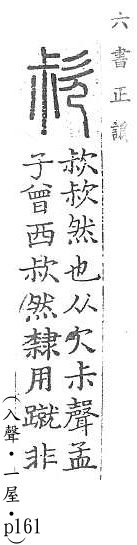 六書正
㰗
㰗㰗然也从欠尗聲孟
子曾西㰗然隸用蹴非
(入聲·一屋·p161)